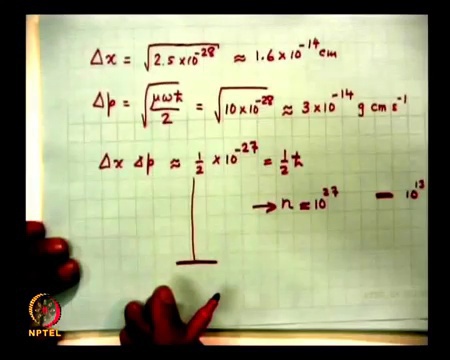 Δx = √2.5×10⁻²⁸ ≈ 1.6×10⁻¹⁴ cm
Δp = √(μωħ/2) = √10×10⁻²⁸ ≈ 3×10⁻¹⁴ g cm s⁻¹
Δx Δp ≈ 1/2 × 10⁻²⁷ = 1/2 ħ
→ n ≈ 10²⁷ — 10¹³
NPTEL